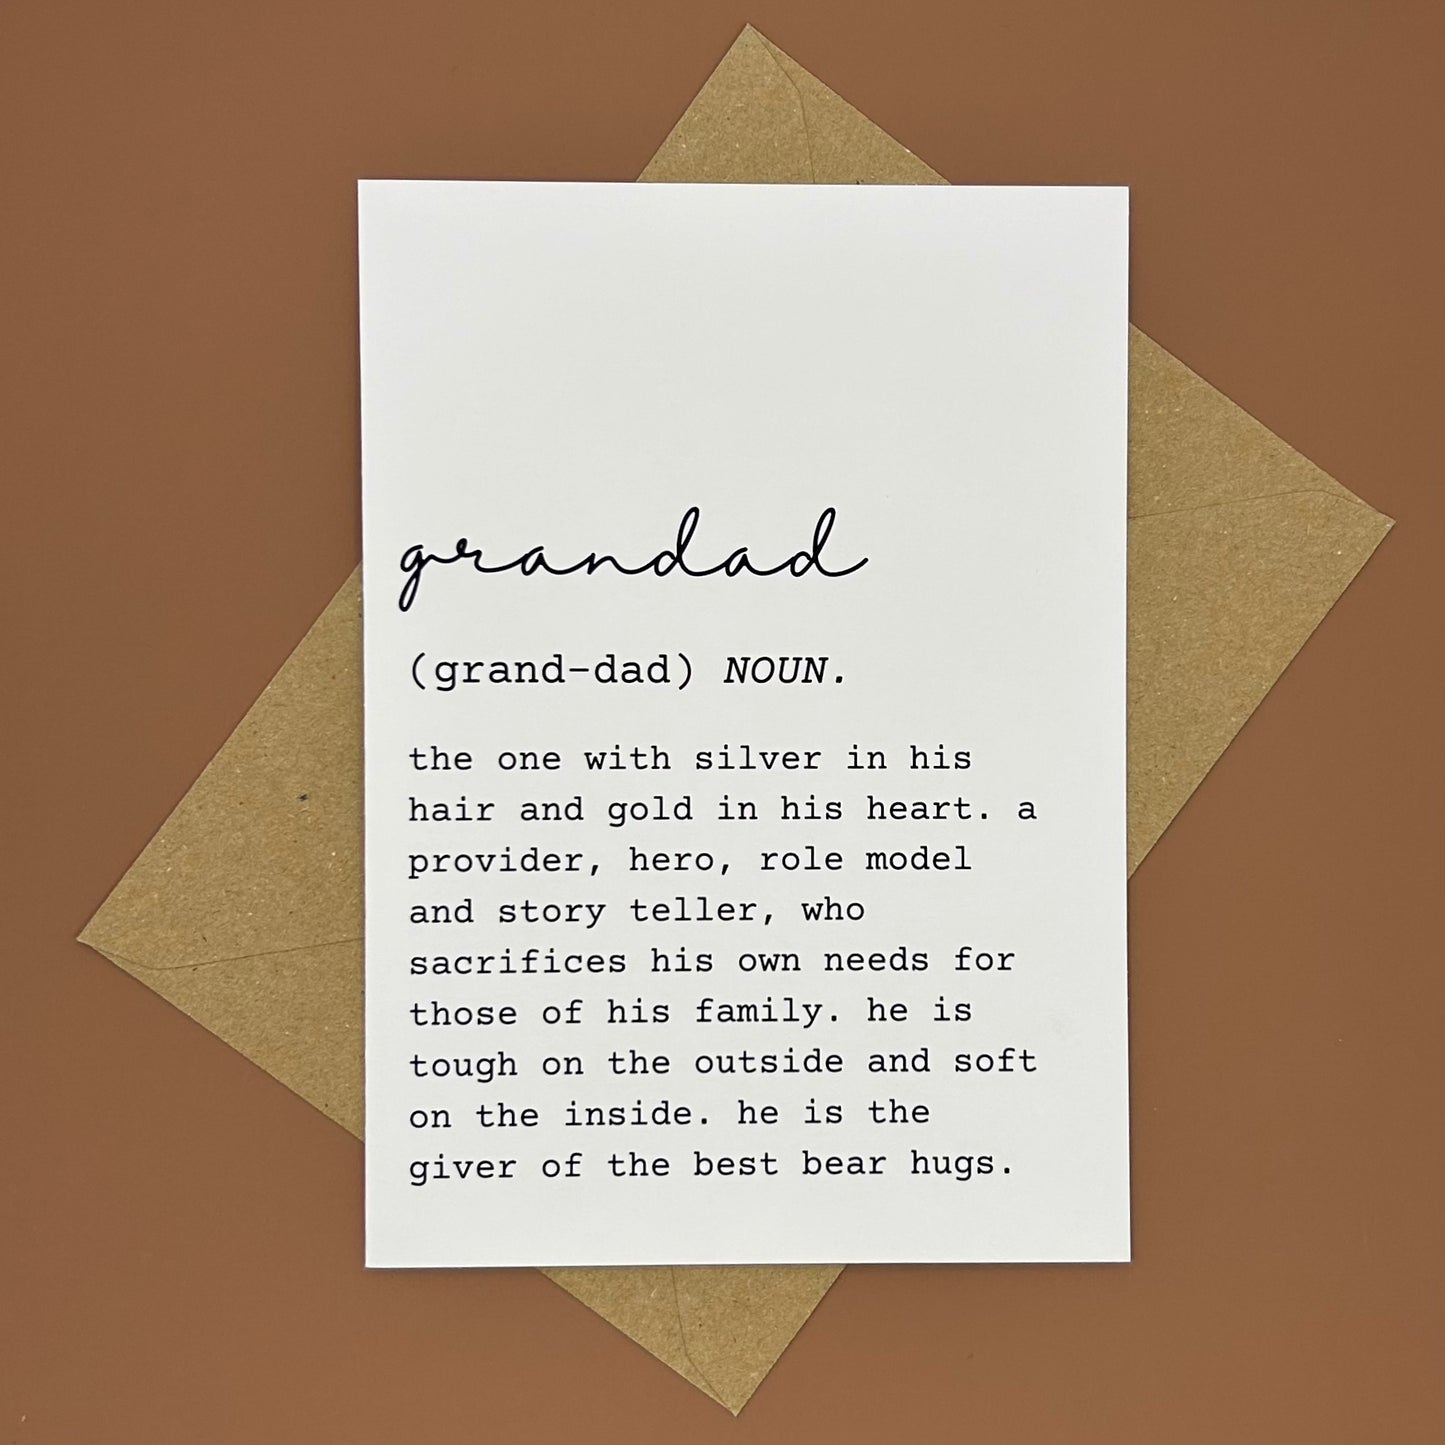 grandad
(grand-dad) NOUN.
the one with silver in his
hair and gold in his heart. a
provider, hero, role model
and story teller, who
sacrifices his own needs for
those of his family. he is
tough on the outside and soft
on the inside. he is the
giver of the best bear hugs.